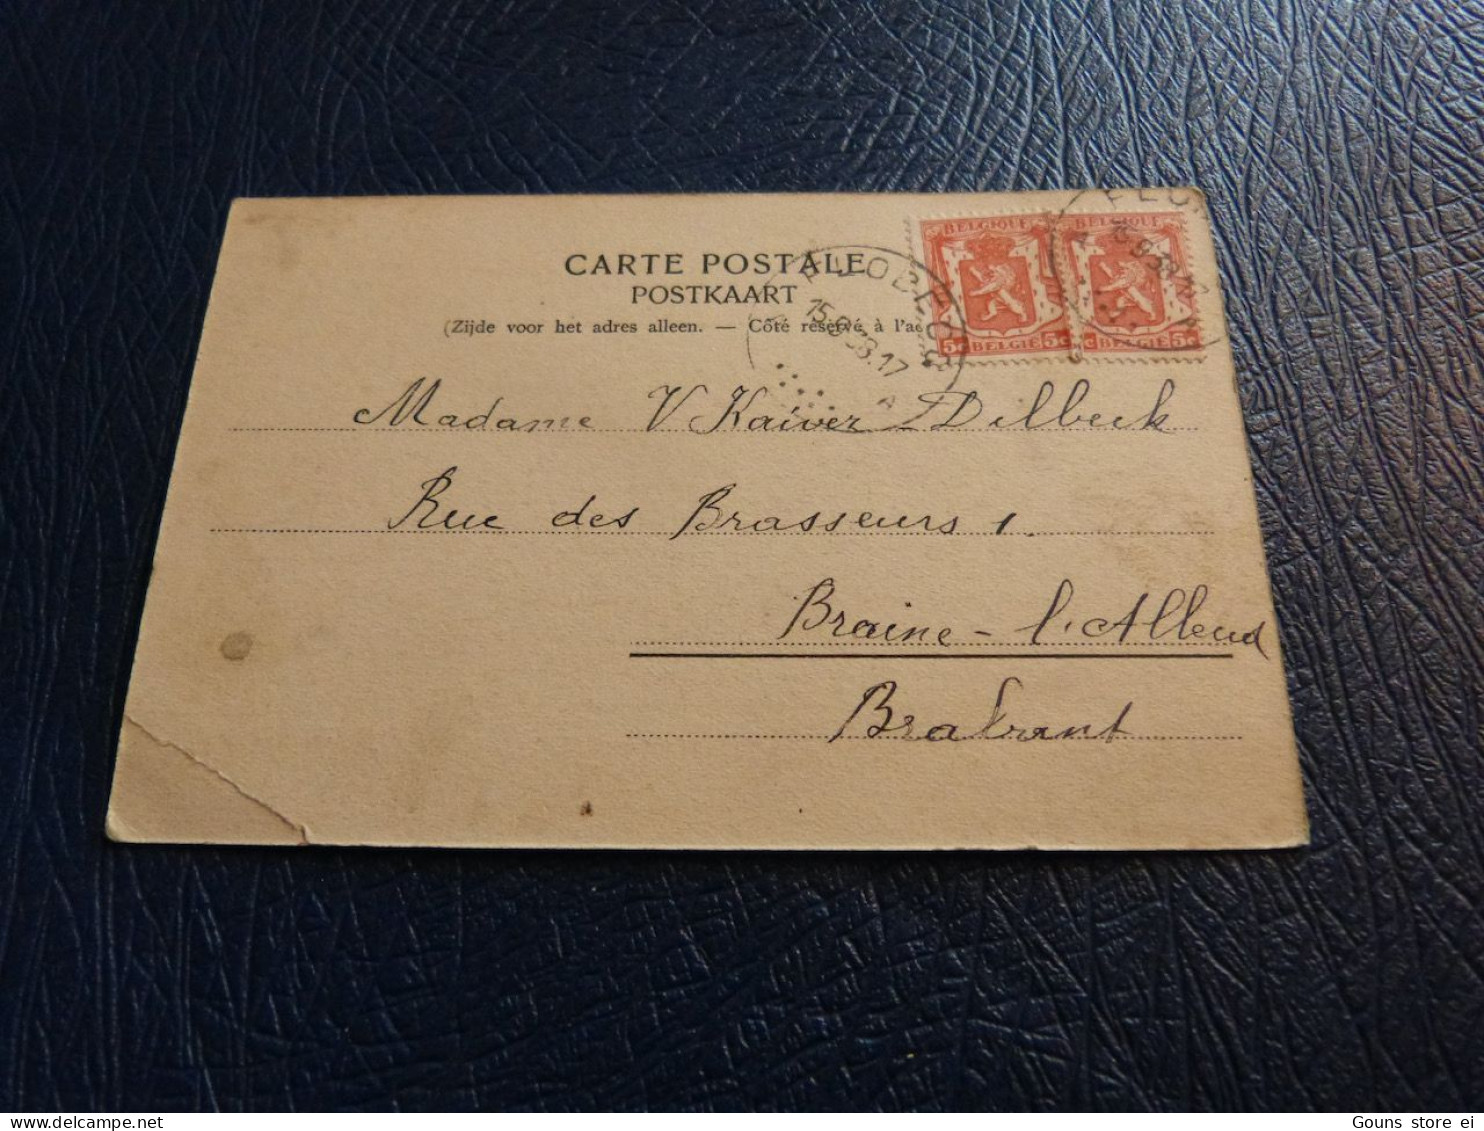 CARTE POSTALE
POSTKAART
(Zijde voor het adres alleen. — Côté réservé à l'a
BELGIQUE BELGIQUE
5c BELGIE 5c BELGIE 5c
15.9.38.17
Madame V Kaiver Dilbeck
Rue des Brasseurs 1.
Braine - l'Alleud
Brabant
Gouns store ei